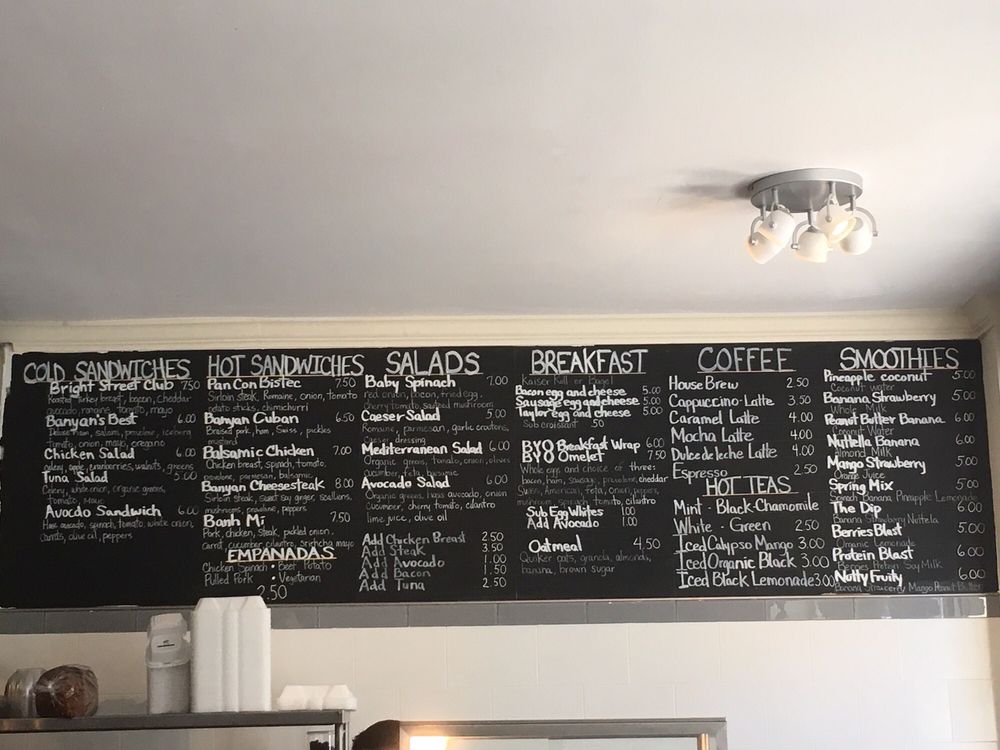 COLD SANDWICHES
Bright Street Club 7.50
Roasted Turkey breast, bacon, cheddar
avocado, romaine, tomato, mayo
Banyan's Best 6.00
ham, salami, provolone, iceberg
tomato, onion, mayo, oregano
Chicken Salad 6.00
celery, apple, cranberries, walnuts, greens
Tuna Salad 5.00
Celery, white onion, organic greens,
tomato, mayo
Avocdo Sandwich 6.00
avocado, spinach, tomato, white onion,
olive oil, peppers
HOT SANDWICHES
Pan Con Bistec 7.50
Sirloin steak, Romaine, onion, tomato
potato sticks, chimichurri
Banyan Cuban 6.50
Braised pork, ham, Swiss, pickles
mustard
Balsamic Chicken 7.00
Chicken breast, spinach, tomato,
provolone, parmesan, balsamic
Banyan Cheesesteak 8.00
Sirloin steak, sweet soy ginger, scallions,
mushrooms, provolone, peppers
Banh Mi 7.50
Pork, chicken, steak, pickled onion,
carrot, cucumber, cilantro, sriracha mayo
EMPANADAS
Chicken Spinach • Beef Potato
Pulled Pork • Vegetarian
2.50
SALADS
Baby Spinach 7.00
red onion, bacon, fried egg,
cherry tomato, mushroom
Caeser Salad 5.00
Romaine, parmesan, garlic croutons,
Caeser dressing
Mediterranean Salad 6.00
Organic greens, tomato, onion, olives
cucumber, feta,
Avocado Salad 6.00
Organic greens, hass avocado, onion
Cucumber, cherry tomato, cilantro
lime juice, olive oil
Add Chicken Breast 2.50
Add Steak 3.50
Add Avocado 1.00
Add Bacon 1.50
Add Tuna 2.50
BREAKFAST
Kaiser Roll or Bagel
Bacon egg and cheese 5.00
Sausage egg and cheese 5.00
Taylor egg and cheese 5.00
Sub croissant .50
BYO Breakfast Wrap 6.00
BYO Omelet 7.50
Whole eggs and choice of three:
bacon, ham, sausage, provolone, cheddar
Swiss, American, feta, onion, peppers,
mushroom, spinach, tomato, cilantro
Sub Egg Whites 1.00
Add Avocado 1.00
Oatmeal 4.50
Quiker oats, granola, almonds,
banana, brown sugar
COFFEE
House Brew 2.50
Cappuccino-Latte 3.50
Caramel Latte 4.00
Mocha Latte 4.00
Dulce de leche Latte 4.00
Espresso 2.50
HOT TEAS
Mint - Black - Chamomile
White - Green 2.50
Iced Calypso Mango 3.00
Iced Organic Black 3.00
Iced Black Lemonade 3.00
SMOOTHIES
Pineapple coconut 5.00
Coconut water
Banana Strawberry 5.00
Whole Milk
Peanut Butter Banana 6.00
Coconut Water
Nuttella Banana 6.00
Almond Milk
Mango Strawberry 5.00
Orange Juice
Spring Mix 5.00
Spinach Banana Pineapple Lemonade
The Dip 6.00
Banana Strawberry Nuttela
Berries Blast 5.00
Organic Lemonade
Protein Blast 6.00
Berries Protein Soy Milk
Nutty Fruity 6.00
Banana Strawberry Mango Peanut Butter